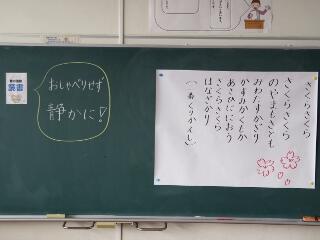 読書
おしゃべりせず
静かに!
さくらさくら
のやまもさとも
みわたすかぎり
かすみかくもか
あさひににおう
さくらさくら
はなざかり
くりかえし